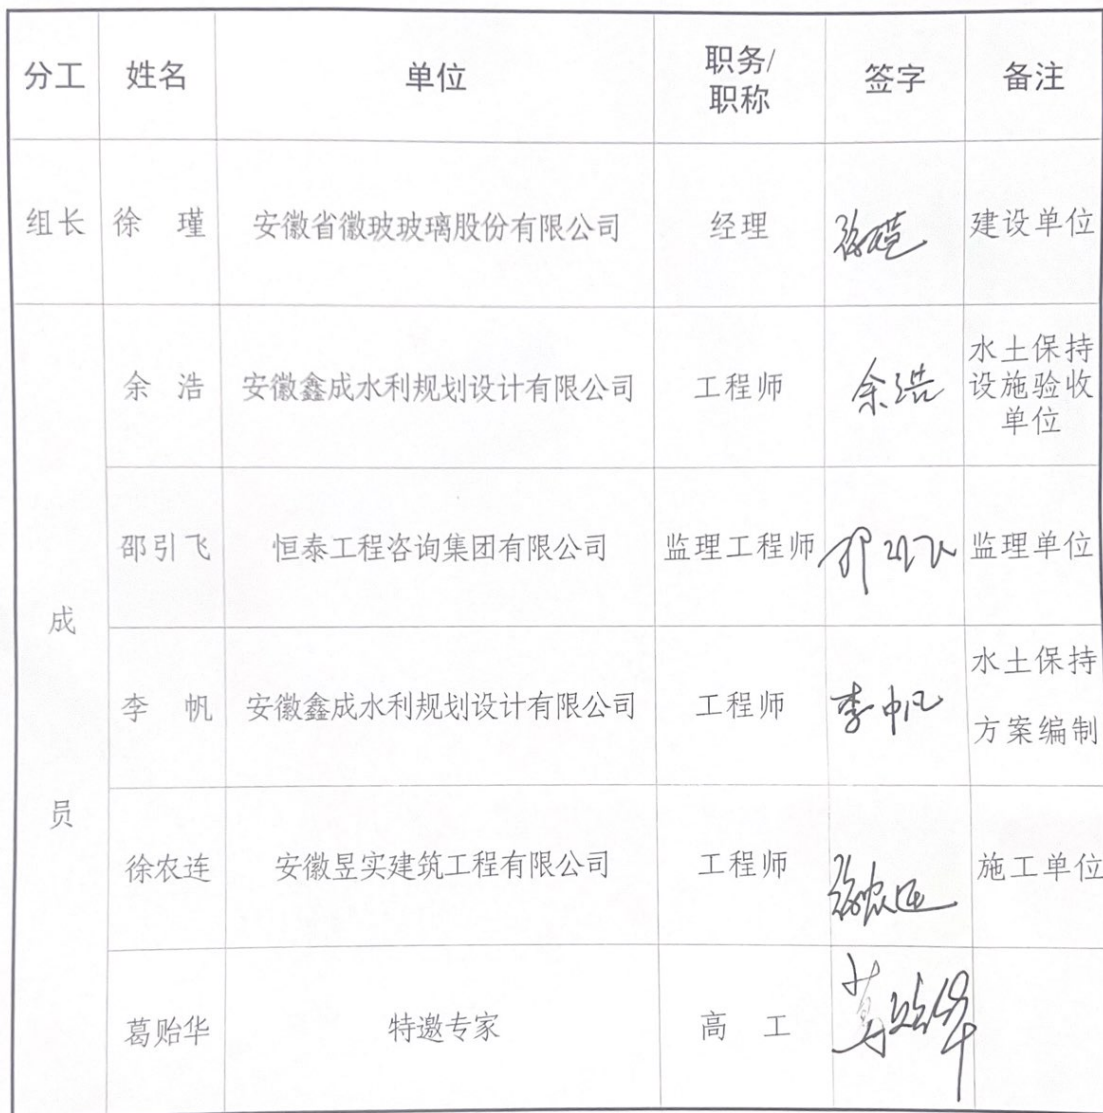 分工 姓名 单位 职务/职称 签字 备注
组长 徐 瑾 安徽省徽玻玻璃股份有限公司 经理 徐瑾 建设单位
成员
余 浩 安徽鑫成水利规划设计有限公司 工程师 余浩 水土保持设施验收单位
邵引飞 恒泰工程咨询集团有限公司 监理工程师 邵引飞 监理单位
李 帆 安徽鑫成水利规划设计有限公司 工程师 李帆 水土保持方案编制
徐农连 安徽昱实建筑工程有限公司 工程师 徐农连 施工单位
葛贻华 特邀专家 高 工 葛贻华